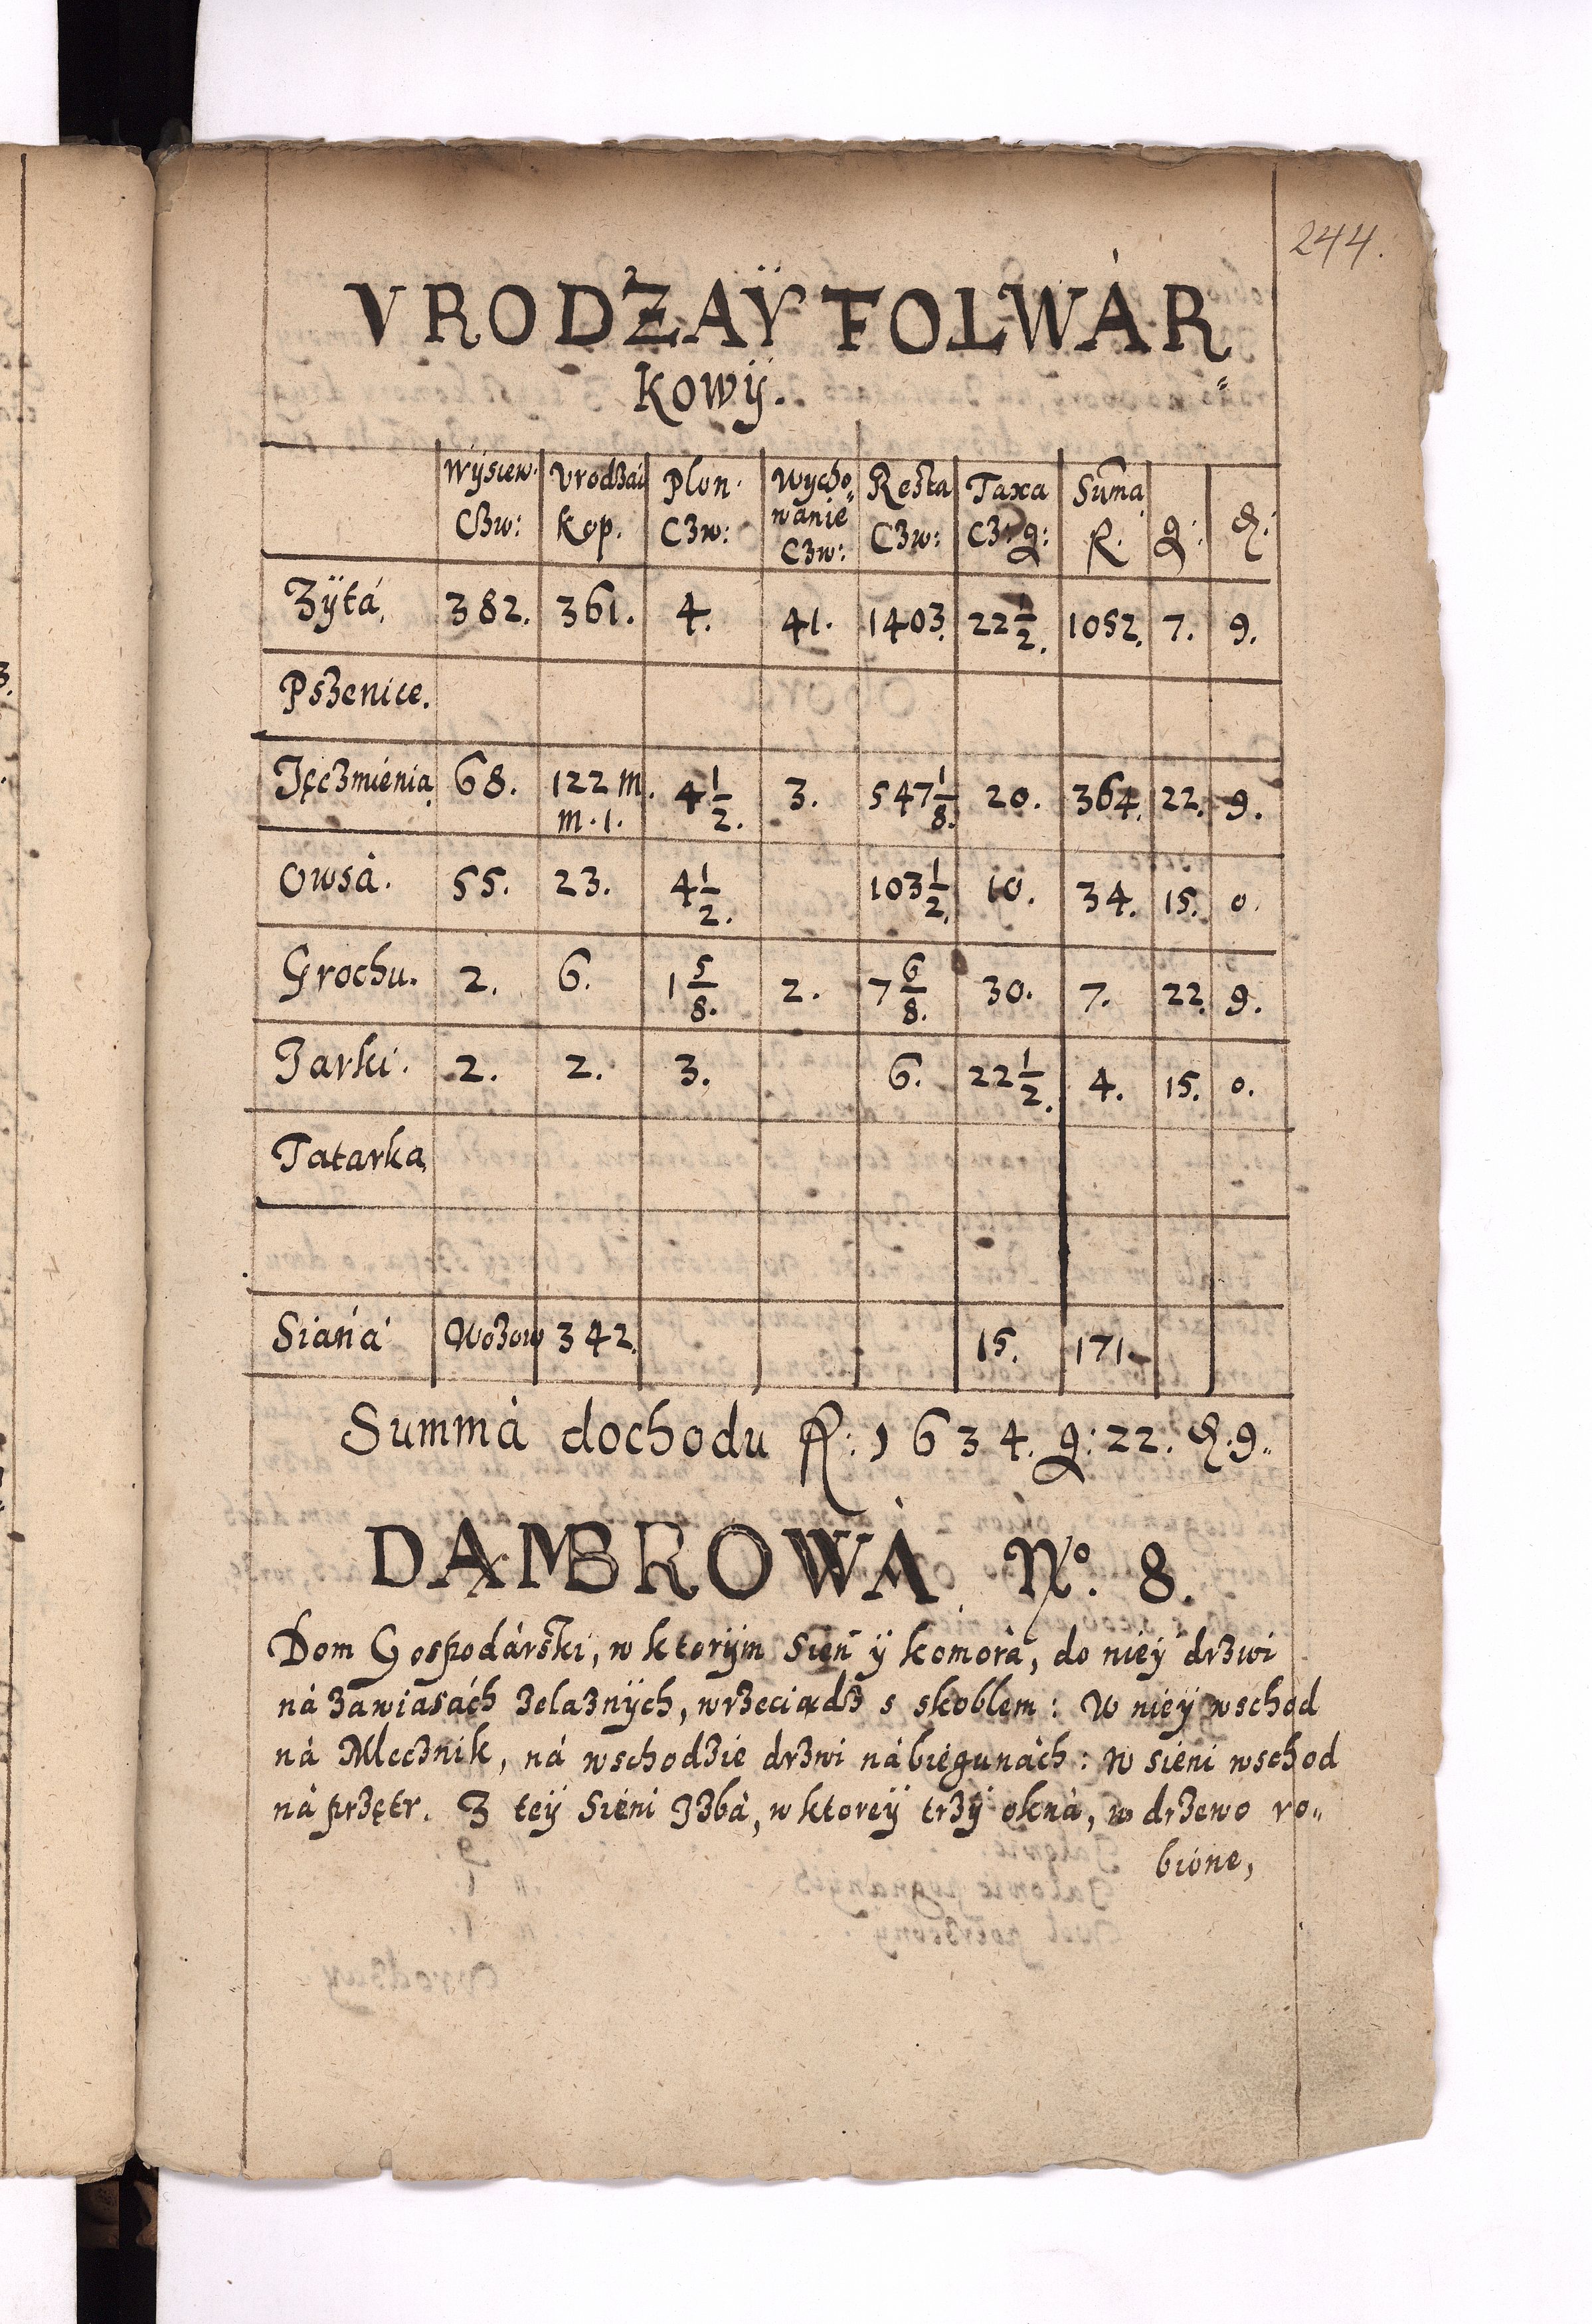 244.
VRODZAŸ FOLWÁR⸗
KOWŸ.
Wysiew. Vrodzai Plon. Wycho⸗ Resta Taxa Suma
Czw: Kop. Czw: wanie Czw: Cz. g: R. g: δ:
Czw:
Zÿtá. 382. 361. 4. 41. 1403. 22 1/2. 1052. 7. 9.
Pszenice.
Jęczmienia 68. 122 m. 4 1/2. 3. 547 1/8. 20. 364. 22. 9.
m. 1.
Owsá. 55. 23. 4 1/2. 103 1/2. 10. 34. 15. 0.
Grochu. 2. 6. 1 5/8. 2. 7 6/8. 30. 7. 22. 9.
Jarki. 2. 2. 3. 6. 22 1/2. 4. 15. 0.
Tatarka
Siáná Wozow 342. 15. 171.
Summá dochodu R: 1634. g: 22. δ. 9.
DĄMBROWÁ No. 8.
Dom Gospodárski, w ktorÿm Sień ÿ komorá, do nieÿ drzwi
ná zawiasách zelaznÿch, wrzeciądz s skoblem: W nieÿ wschod
ná Mlecznik, ná wschodzie drzwi ná biegunách: W sieni wschod
ná przętr. Z teÿ Sieni Izbá, w ktoreÿ trzÿ okná, w drzewo ro⸗
bione,